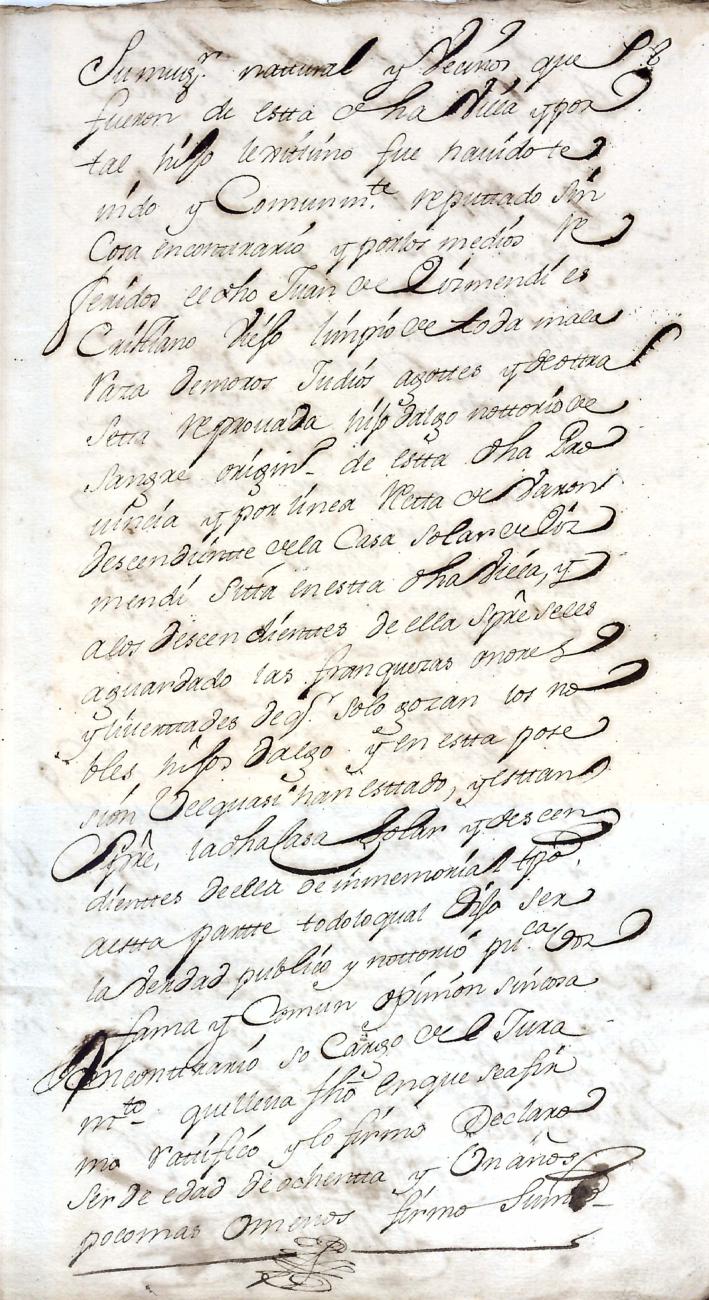 Su mugr. nattural y Vecinos que
fueron de estta dha Villa y por
tal hijo lexitimo fue havido te
nido y Comunmte. reputtado sin
Cosa en contrario y por los medios Re
feridos el dho Juan de Lizmendi es
Cristiano Viejo limpio de toda mala
raza de moros Judios agottes y de ottra
setta reprovada hijo dalgo nottorio de
sangre origin. de estta dha Pro
vincia y por linea Retta de Varon
descendiente de la Casa solar de Liz
mendi sitta en estta dha Villa, y
a los descendienttes de ella spre se les
a guardado las franquezas onores
y livertades de q. solo gozan los no
bles hijos dalgo y en estta pose
sion Vel quasi han esttado, y esttan
spre, la dha Casa Solar y descen
dienttes de ella de inmemorial tpo.
a estta partte todo lo qual Dijo ser
la Verdad publico y nottorio pu.ca Voz
fama y Comun opinion sin cosa
en contrario so Cargo del Jura
mto. que lleva fho en que se afir
mo rattifico y lo firmo Declaro
ser de edad de ochentta y Un años
poco mas o menos firmo Su md